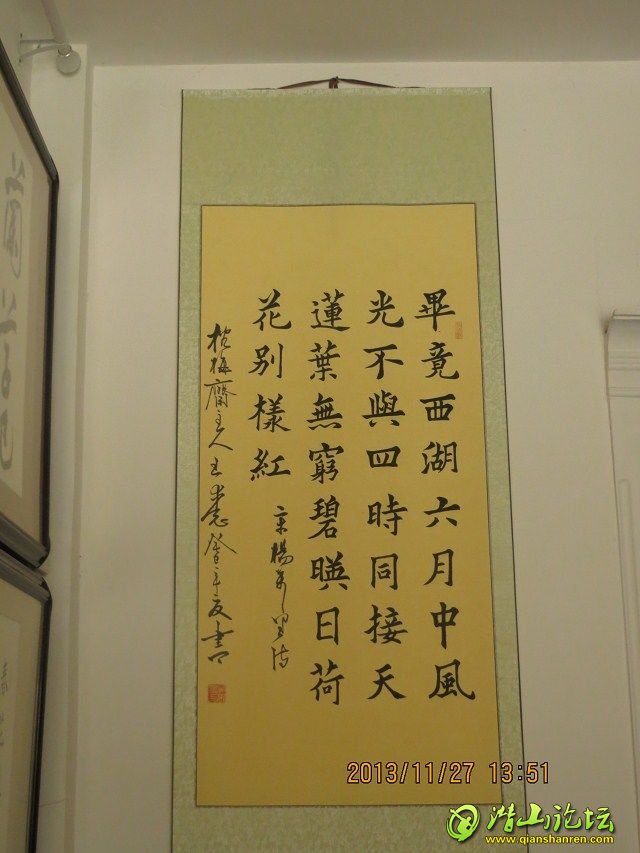 畢竟西湖六月中風
光不與四時同接天
蓮葉無窮碧暎日荷
花別樣紅
宋楊万里诗
梅齋主人
書
2013/11/27 13:51
潜山论坛
www.qianshanren.com